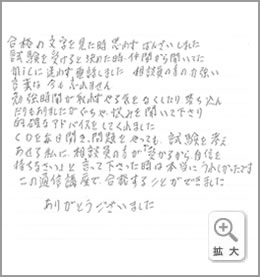 合格の文字を見た時 思わず ばんざいしました
試験を受けると決めた時、仲間から聞いてた
前に迷わず電話しました 相談員の方の力強い
言葉は 今も 忘れません
勉強時間が取れずやる気をなくしたり 落ち込ん
だりもありましたがぐちや、状況を 聞いて下さり
的確なアドバイスをしてくれました
CDを毎日聞き、問題をやっても、試験を考え
あせる私に、相談員の方が「受かるから、自信を
持ちなさい」と 言って下さった時は 本当に うれしかったです
この通信講座で、合格することができました
ありがとうございました
拡大